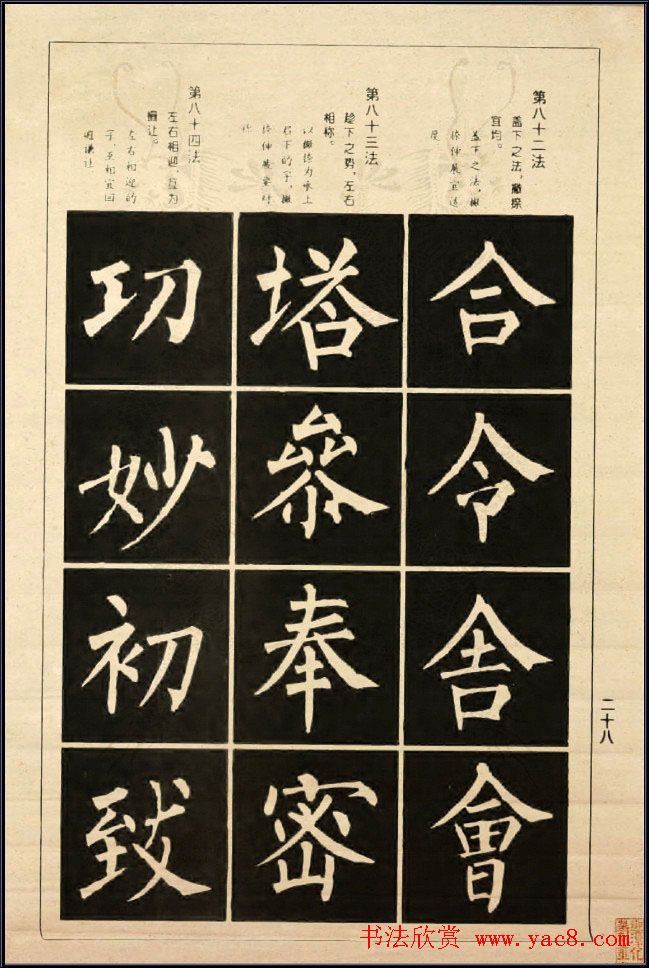 第八十二法
盖下之法，撇捺
宜均。
盖下之法，撇
捺伸展宜适
度
第八十三法
趁下之势，左右
相称。
以撇捺为承上
启下的字，撇
捺伸展要对
称
第八十四法
左右相迎，互为
揖让。
左右相迎的
字，互相宜回
避谦让
合令舍會
塔叅奉密
㓛妙初致
二十八
书法欣赏 www.yac8.com